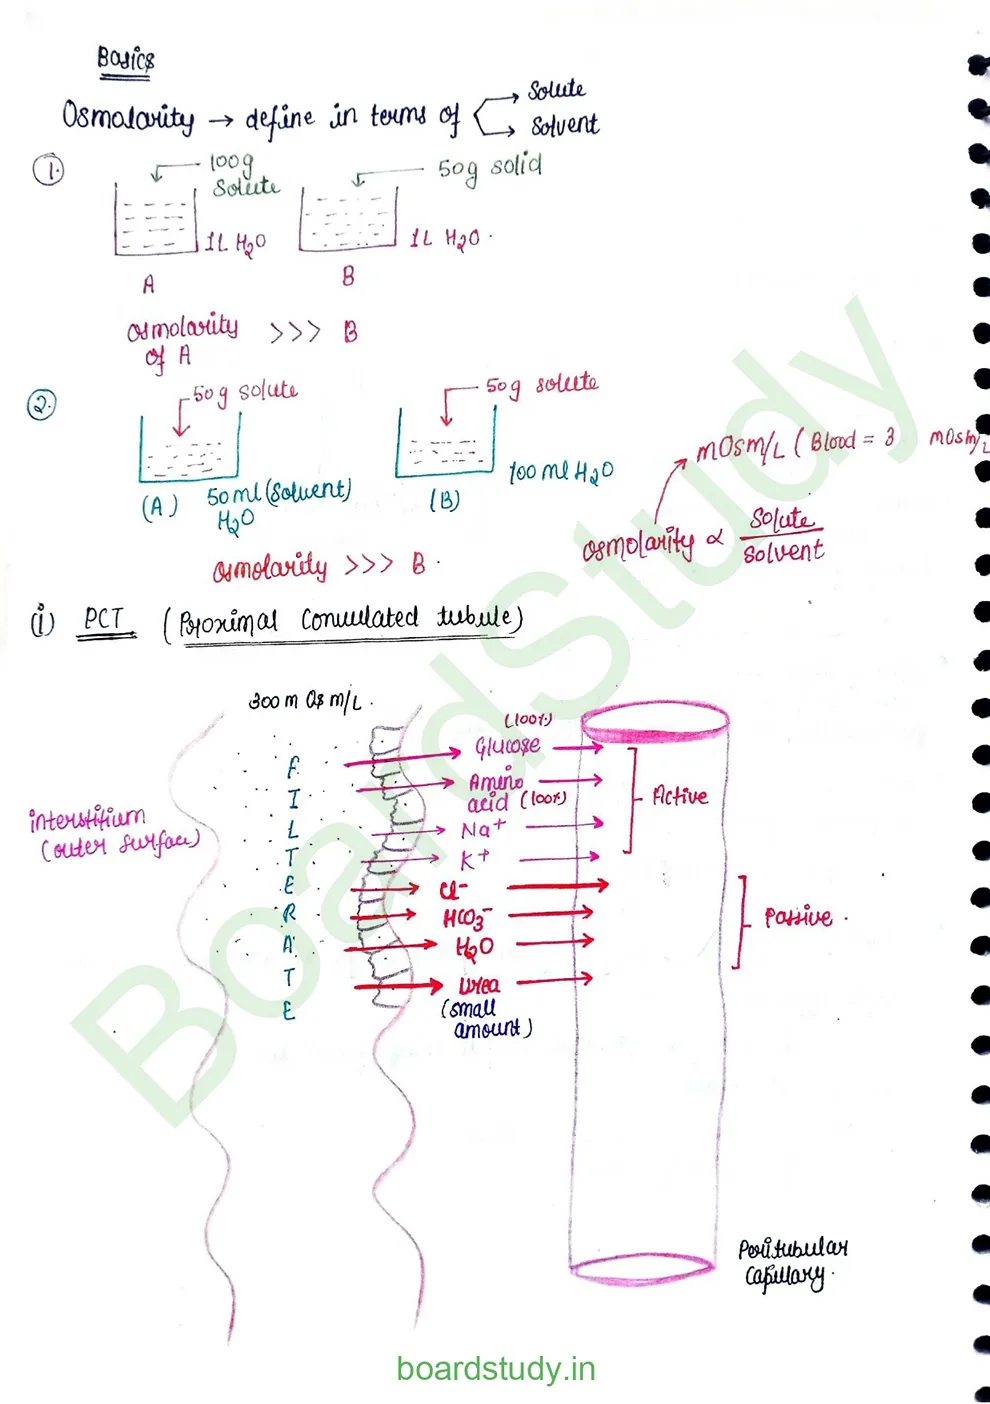 Basics
Osmolarity → define in terms of → Solute
→ Solvent
1.
100g
Solute
50g solid
1L H₂O
1L H₂O.
A
B
osmolarity >>> B
of A
2.
50g solute
50g solute
(A) 50ml (Solvent)
H₂O
(B)
100 ml H₂O
mOsm/L (Blood = 3 mOsm/L
osmolarity ∝ Solute
Solvent
osmolarity >>> B.
(i) PCT (Proximal Convulated tubule)
300 m Osm/L.
FILTERATE
interstitium
(outer surface)
(100%)
Glucose
Amino
acid (100%)
Na⁺
K⁺
Active
Cl⁻
HCO₃⁻
H₂O
Urea
(small
amount)
Passive.
Peritubular
Capillary.
BoardStudy
boardstudy.in